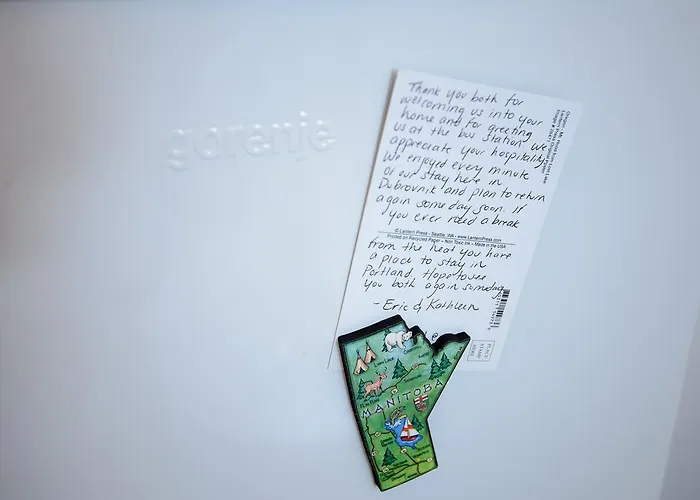 gorenje
Thank you both for
welcoming us into your
home and for greeting
us at the bus station. We
appreciate your hospitality.
We enjoyed every minute
of our stay here in
Dubrovnik and plan to return
again some day soon. If
you ever need a break
© Lantern Press - Seattle, WA - www.LanternPress.com
Printed on Recycled Paper • Non Toxic Ink • Made in the USA
from the heat you have
a place to stay in
Portland. Hope to see
you both again someday.
- Eric & Kathleen
PLACE
STAMP
HERE
MANITOBA